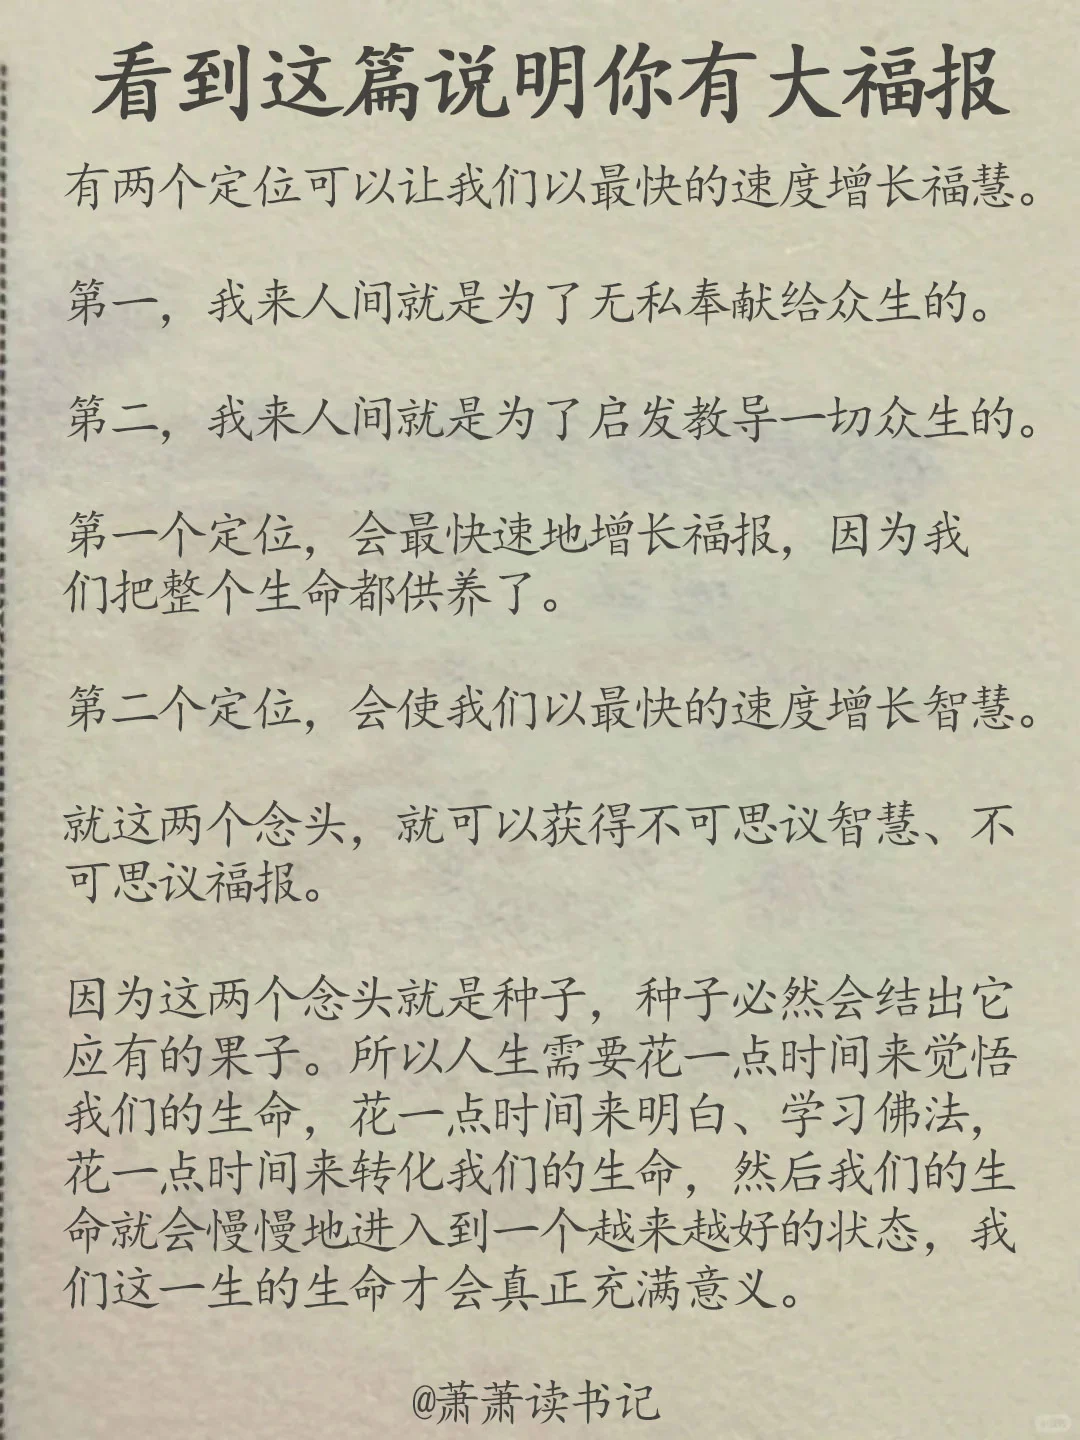 看到这篇说明你有大福报
有两个定位可以让我们以最快的速度增长福慧。
第一，我来人间就是为了无私奉献给众生的。
第二，我来人间就是为了启发教导一切众生的。
第一个定位，会最快速地增长福报，因为我
们把整个生命都供养了。
第二个定位，会使我们以最快的速度增长智慧。
就这两个念头，就可以获得不可思议智慧、不
可思议福报。
因为这两个念头就是种子，种子必然会结出它
应有的果子。所以人生需要花一点时间来觉悟
我们的生命，花一点时间来明白、学习佛法，
花一点时间来转化我们的生命，然后我们的生
命就会慢慢地进入到一个越来越好的状态，我
们这一生的生命才会真正充满意义。
@萧萧读书记